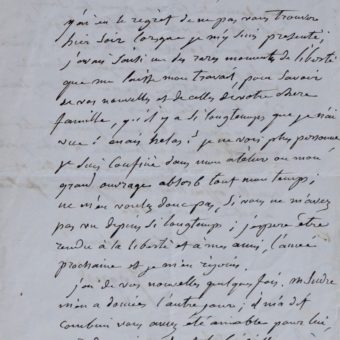 j'ai eu le regret de ne pas vous trouver
hier soir lorsque je m'y suis presenté,
j'avais saisi un des rares moments de liberté
que me laisse mon travail, pour savoir
de vos nouvelles et de celles de votre chere
famille, qu'il y a si longtemps que je n'ai
vue! mais helas! je ne vois plus personne
je suis confiné dans mon atelier ou mon
grand ouvrage absorb tout mon temps;
ne m'en voulez donc pas, si vous ne m'avez
pas vu depuis si longtemps; j'espere être
rendu à la liberté et à mes amis, l'année
prochaine et je m'en rejouis.
j'ai de vos nouvelles quelques fois. M.
m'en a données l'autre jour; il m'a dit
combien vous avez été aimable pour lui,